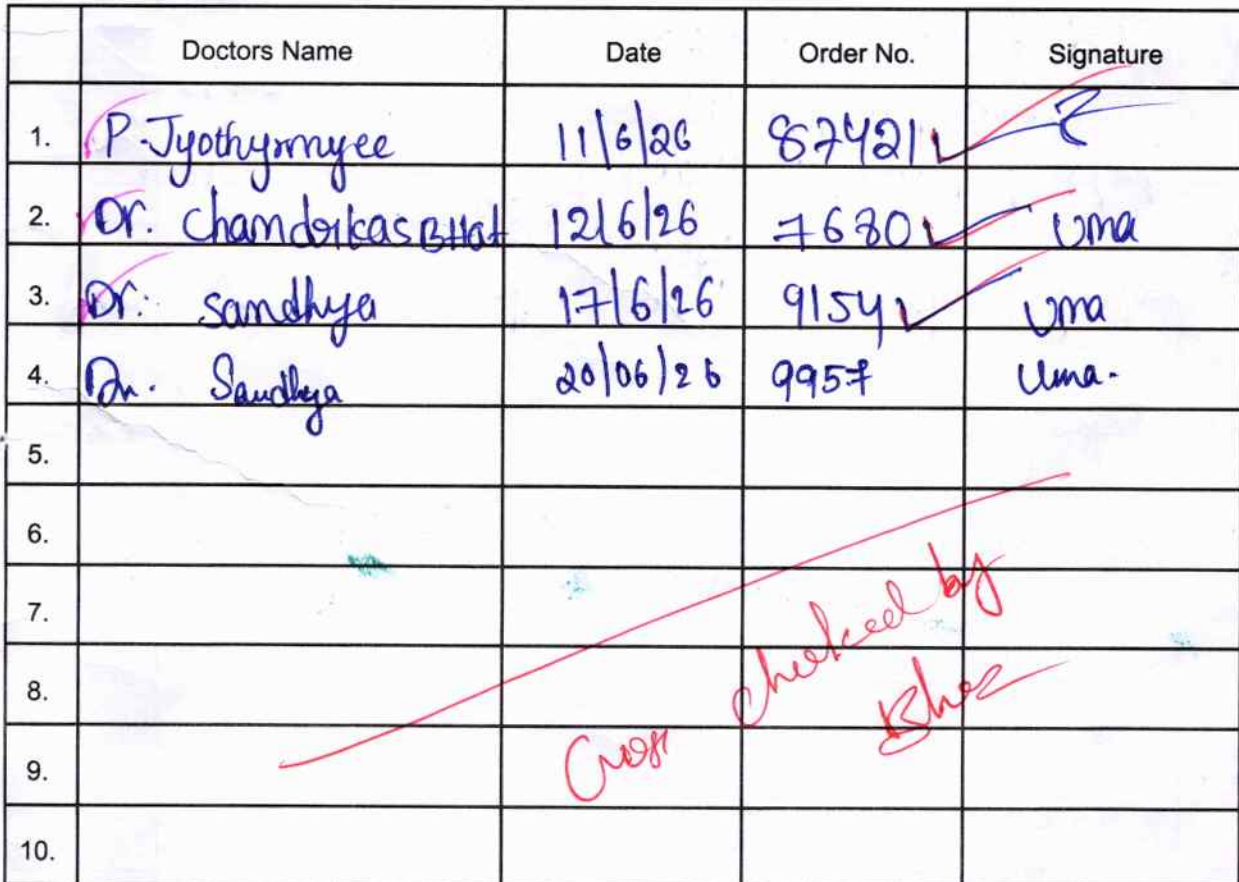 Doctors Name Date Order No. Signature
1. P. Jyothyrmyee 11/6/26 87421
2. Dr. Chandrikas BHat 12/6/26 7680 Uma
3. Dr. Sandhya 17/6/26 9154 Uma
4. Dr. Sandhya 20/06/26 9957 Uma.
5.
6.
7.
8.
9.
10.
Cross checked by